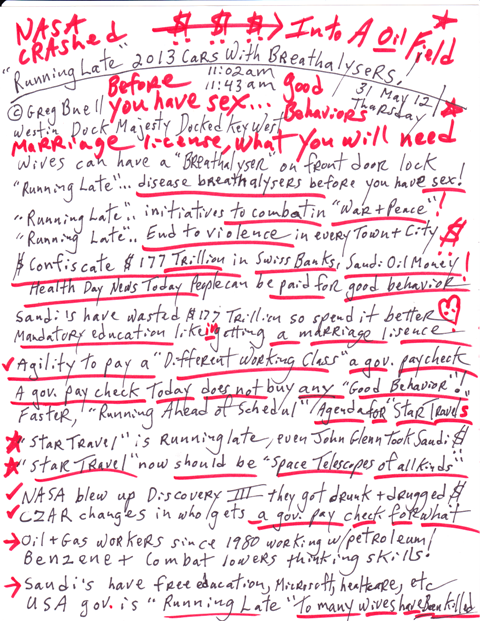 NASA CRAshed $ $ $ → Into A Oil Field
"Running Late" 2013 Cars With Breathalysers,
11:02am
11:43am
31 May 12
Thursday
Before you have sex... good Behaviors
© Greg Buell
Westin Dock Majesty Docked Key West
Marriage license, what you will need
wives can have a "Breathalyser" on front door lock
"Running Late".. disease breathalysers before you have sex!
"Running Late".. initiatives to combat in "War + Peace"!
"Running Late".. End to violence in every Town + City $
$ Confiscate $177 Trillion in Swiss Banks, Saudi Oil Money!
Health Day News Today People can be paid for good behavior!
Saudi's have wasted $177 Trillion so spend it better
Mandatory education like in getting a marriage lisence!
✓ Agility to pay a "Different Working Class" a gov. paycheck
A gov. pay check Today does not buy any "Good Behavior"!
Faster, "Running Ahead of Schedul" Agenda for "Star Travels
★ "Star Travel" is Running late, even John Glenn Took Saudi $
★ "Star Travel" now should be "Space Telescopes of all kinds"
✓ NASA blew up Discovery III they got drunk + drugged $
✓ CZAR changes in who/gets a gov. pay check for what
→ Oil + Gas workers since 1980 working w/petroleum/
Benzene + Combat lowers thinking skills!
→ Saudi's have free education, Microsoft, healtcare, etc
USA gov. is "Running Late" To many wives have Ban killed